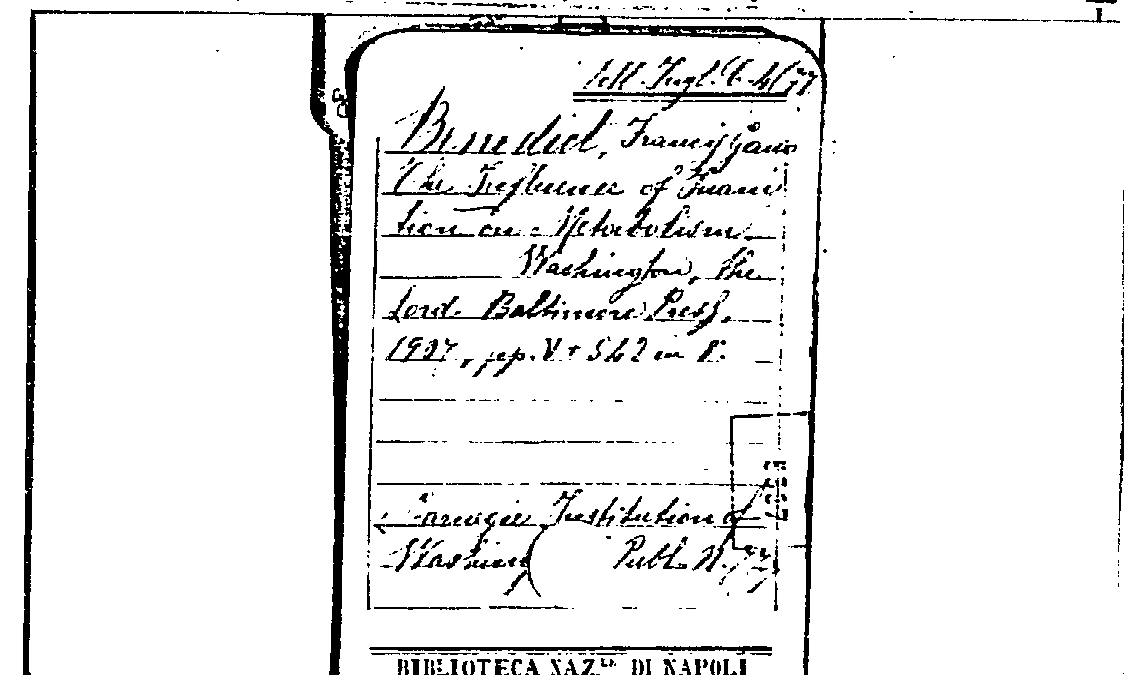 Coll. Ingl. C. 4(77
Benedict, Francis Gano
The Influence of Inani
tion on Metabolism
Washington, the
Lord Baltimore Press,
1907, pp. V + 542 in 8.
Carnegie Institution of
Washing Publ. N. 77)
BIBLIOTECA NAZ.LE DI NAPOLI